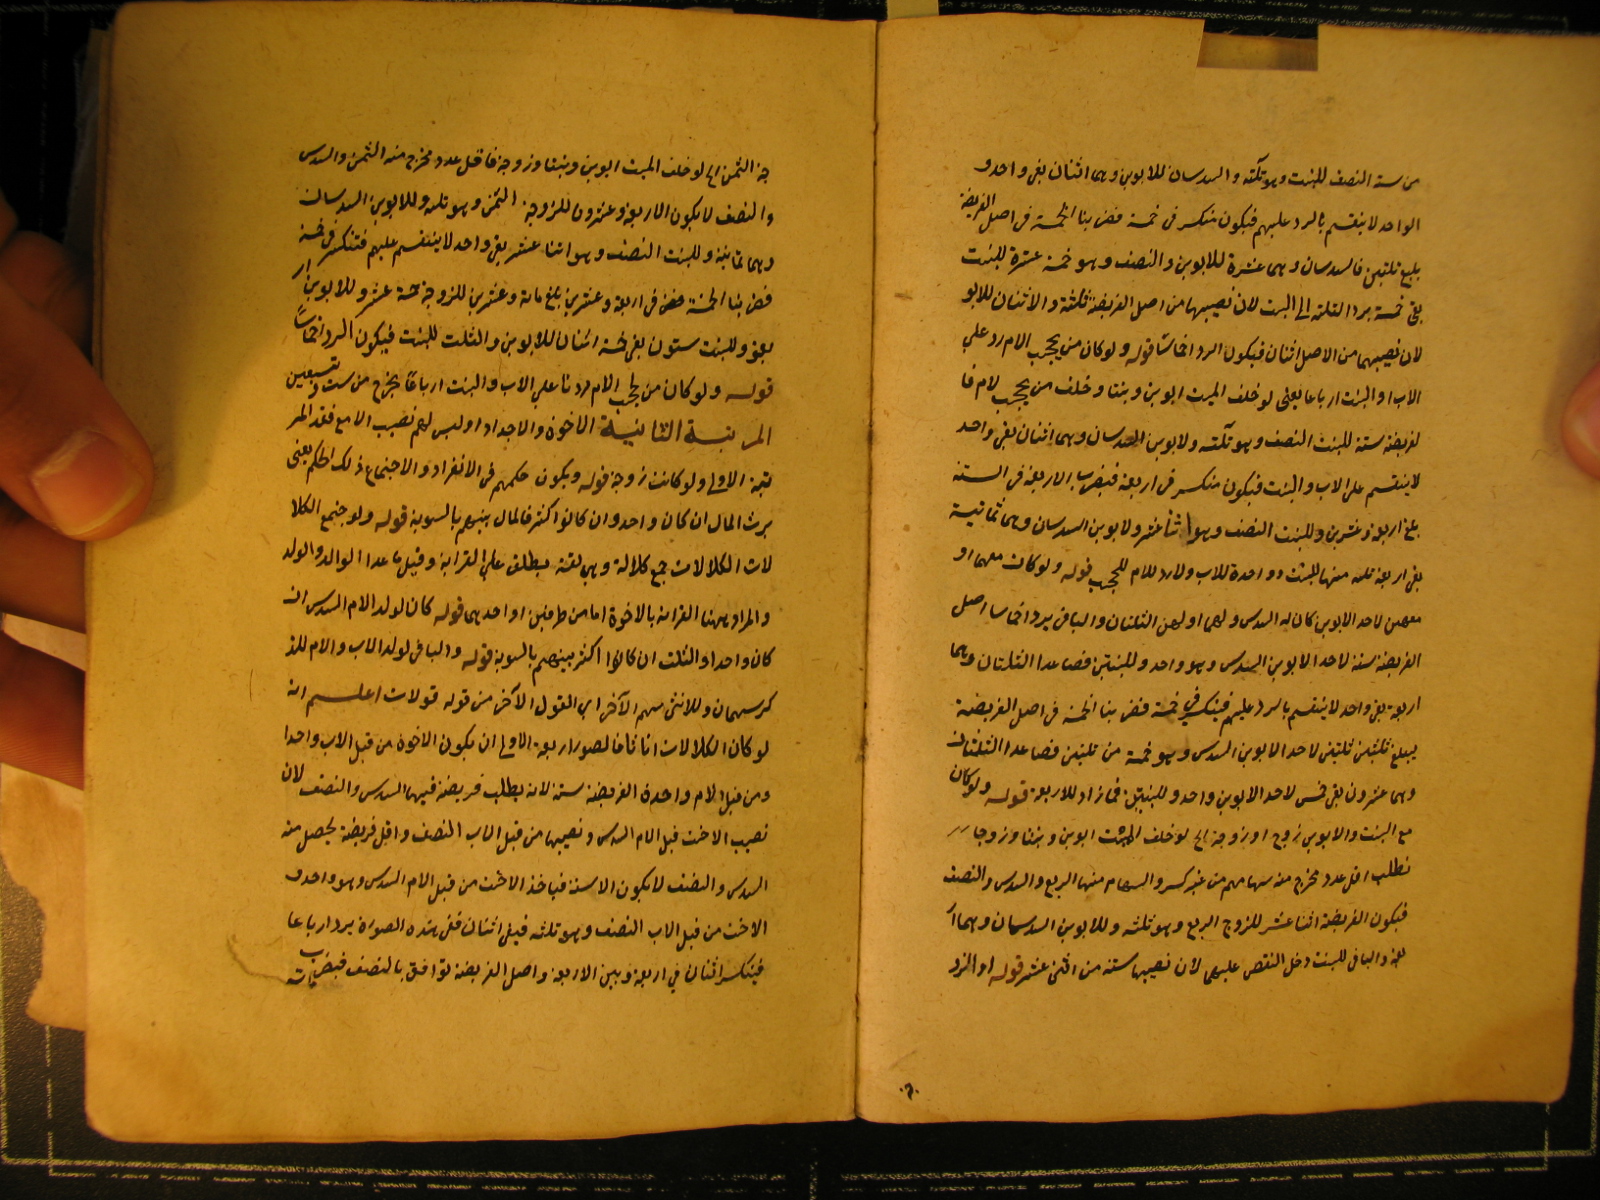 من ستة النصف للبنت وهو ثلثه والسدسان للابوين وهما اثنان بقى واحد و
الواحد لا ينقسم بالرد عليهم فيكون منكسر فى خمسة فضربنا الخمسة فى اصل الفريضة
يبلغ ثلثين فالسدسان وهى عشرة للابوين والنصف وهو خمسة عشرة للبنت
بقى خمسة يرد الثلثه الى البنت لان نصيبها من اصل الفريضة ثلثة والاثنان للابو
لان نصيبهما من الاصل اثنان فيكون الرد اخماسا قوله ولو كان من يحجب الام رد علي
الاب او البنت ارباعا يعنى لو خلف الميت ابوين وبنتا وخلف من يحجب لام فا
لفريضة ستة للبنت النصف وهو ثلثه ولابوين السدسان وهما اثنان بقى واحد
لا ينقسم على الاب والبنت فيكون منكسر فى اربعة فيضرب الاربعة فى الستة
بلغ اربعة وعشرين وللبنت النصف وهو اثنا عشر ولابوين السدسان وهى ثمانية
بقى اربعة ثلثه منها للبنت وواحدة للاب ولا رد للام للحجب قوله ولو كانت معهما او
معهن لاحد الابوين كان له السدس ولهما او لهن الثلثان والباقى يرد اخماسا اصل
الفريضة ستة لاحد الابوين السدس وهو واحد وللبنتين فصاعدا الثلثان وهما
اربعة بقى واحد لا ينقسم بالرد عليهم فينكسر في خمسة فضربنا الخمسة فى اصل الفريضة
يبلغ ثلثين ثلثين لاحد الابوين السدس وهو خمسة من ثلثين فصاعدا الثلثان
وهما عشرون بقى خمس لاحد الابوين واحد وللبنتين فما زاد للاربعة قوله ولو كان
مع البنت والابوين زوج او زوجة الخ لو خلف الميت ابوين وبنتا وزوجا
نطلب اقل عدد يخرج منه سهامهم من غير كسر والسهام منها الربع والسدس والنصف
فيكون الفريضة اثنا عشر للزوج الربع وهو ثلثه وللابوين السدسان وهما ار
بعة والباقى للبنت دخل النقص عليها لان نصيبها ستة من اثنى عشر قوله او الزو
جة الثمن الخ لو خلف الميت ابوين وبنتا وزوجة فاقل عدد يخرج منه الثمن والسدس
والنصف لا يكون الا اربعة وعشرون للزوجة الثمن وهو ثلثه وللابوين السدسان
وهما ثمانية وللبنت النصف وهو اثنا عشر بقى واحد لا ينقسم عليهم فتنكسر فى خمسة
فضربنا الخمسة فى اربعة وعشرين بلغ مائة وعشرين للزوجة خمسة عشر وللابوين ار
بعون وللبنت ستون بقى خمسة اثنان للابوين والثلث للبنت فيكون الرد اخماسًا
قوله ولو كان من يحجب الام رددنا علي الاب والبنت ارباعًا يخرج من ست وتسعين
المرتبة الثانية الاخوة والاجداد اوليس لهم نصيب الا مع فقد المر
تبة الاولى ولو كانت زوجة قوله ويكون حكمهم فى الانفراد والاجتماع ذلك الحكم يعنى
يرث المال ان كان واحد وان كانوا اكثر فالمال بينهم بالسوية قوله ولو جتمع الكلا
لات الكلالات جمع كلاله وهى لغة يطلق علي القرابة وقيل ما عدا الوالد والولد
والمراد بهنا القرابة بالاخوة اما من طرفين او احدهما قوله كان لولد الام السدس ان
كان واحدا والثلث ان كانوا اكثر بينهم بالسوية قوله والباقى لولد الاب والام للذ
كر سهمان وللانثى سهم الآخر اى القول الآخر من قوله قولات اعلم انه
لو كان الكلالات اناثا فالصور اربعة الاولى ان يكون الاخوة من قبل الاب واحدا
ومن قبل الام واحدة الفريضة ستة لانه يطلب فريضة فيها السدس والنصف لان
نصيب الاخت قبل الام السدس ونصيبها من قبل الاب النصف واقل فريضة يحصل منه
السدس والنصف لا يكون الا ستة فياخذ الاخت من قبل الام السدس وهو واحد و
الاخت من قبل الاب النصف وهو ثلثه فبقى اثنان فعلى هذه الصورة يرد ارباعا
فينكسر اثنان في اربعة وبين الاربعة واصل الفريضة توافق بالنصف فيضرب